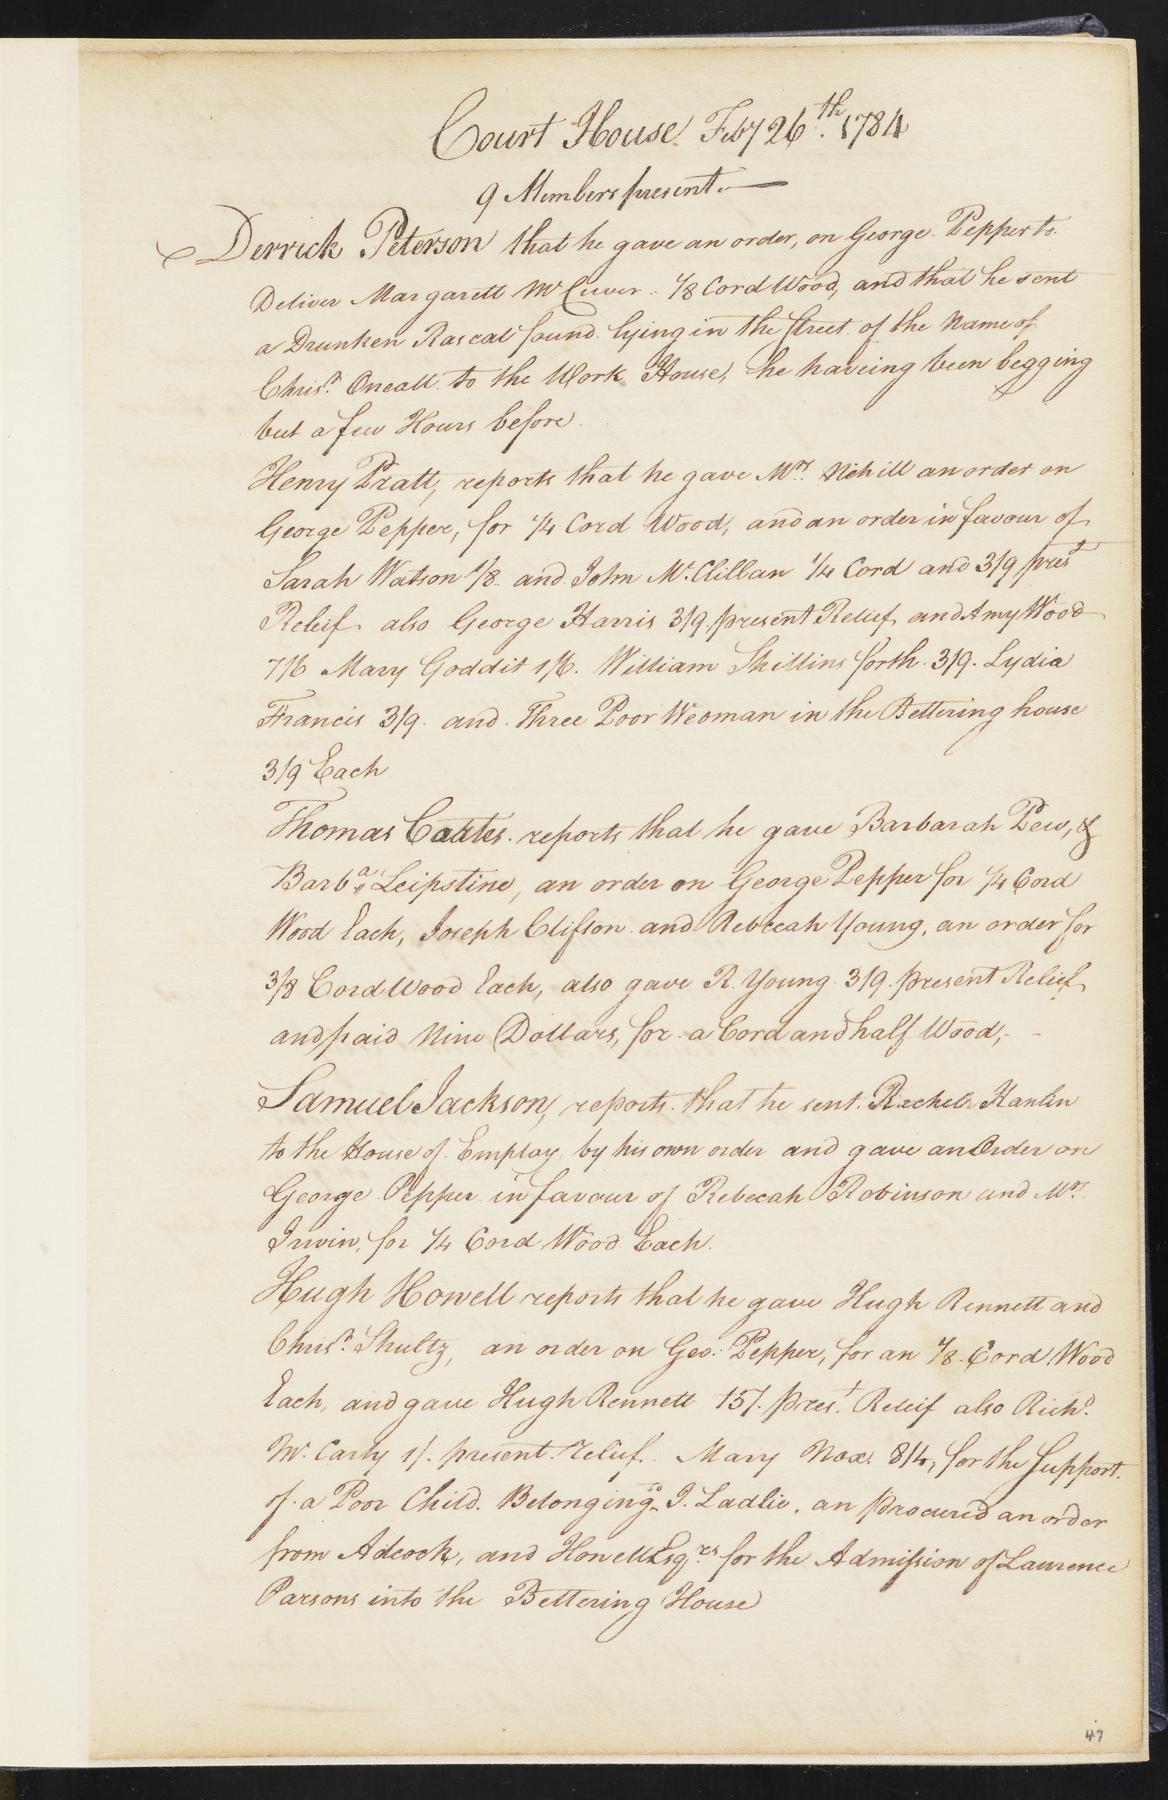 Court House Feby 26th. 1784
9 Members present.—
Derrick Peterson that he gave an order, on George Pepper to
Deliver Margarett McCuver 1/8 Cord Wood, and that he sent
a Drunken Rascal found lying in the street of the Name of
Chrisr. Oneall to the Work House, he haveing been begging
but a few Hours before.
Henry Pratt, reports that he gave Mrs. Nihill an order on
George Pepper, for 1/4 Cord Wood, and an order in favour of
Sarah Watson 1/8 and John McClillan 1/4 Cord and 3/9 prest
Releif also George Harris 3/9 present Relief and Amy Wood
7/6 Mary Goddit 1/6. William Skillins forth 3/9. Lydia
Francis 3/9. and Three Poor Weoman in the Bettering house
3/9 Each
Thomas Coates reports that he gave Barbarah Pew, &
Barba. Leipstine, an order on George Pepper for 1/4 Cord
Wood Each, Joseph Clifson and Rebecah Young, an order for
3/8 Cord Wood Each, also gave R. Young 3/9 present Relief
and paid Nine Dollars, for a Cord and half Wood,
Samuel Jackson, reports that he sent Rachel Hanlin
to the House of Employ by his own order and gave an Order on
George Pepper in favour of Rebecah Robinson and Mrs.
Irwin, for 1/4 Cord Wood Each.
Hugh Howell reports that he gave Hugh Rennett and
Chrisr. Shultz, an order on Geo: Pepper, for an 1/8 Cord Wood
Each, and gave Hugh Rennett 15/. prest. Releif also Richd.
McCarty 1/. present relief. Mary Nox. 8/4, for the Support.
of a Poor Child. Belonging to J. Ladlie, an procured an order
from Adcock, and Howell Esqrs. for the Admission of Laurence
Parsons into the Bettering House
47